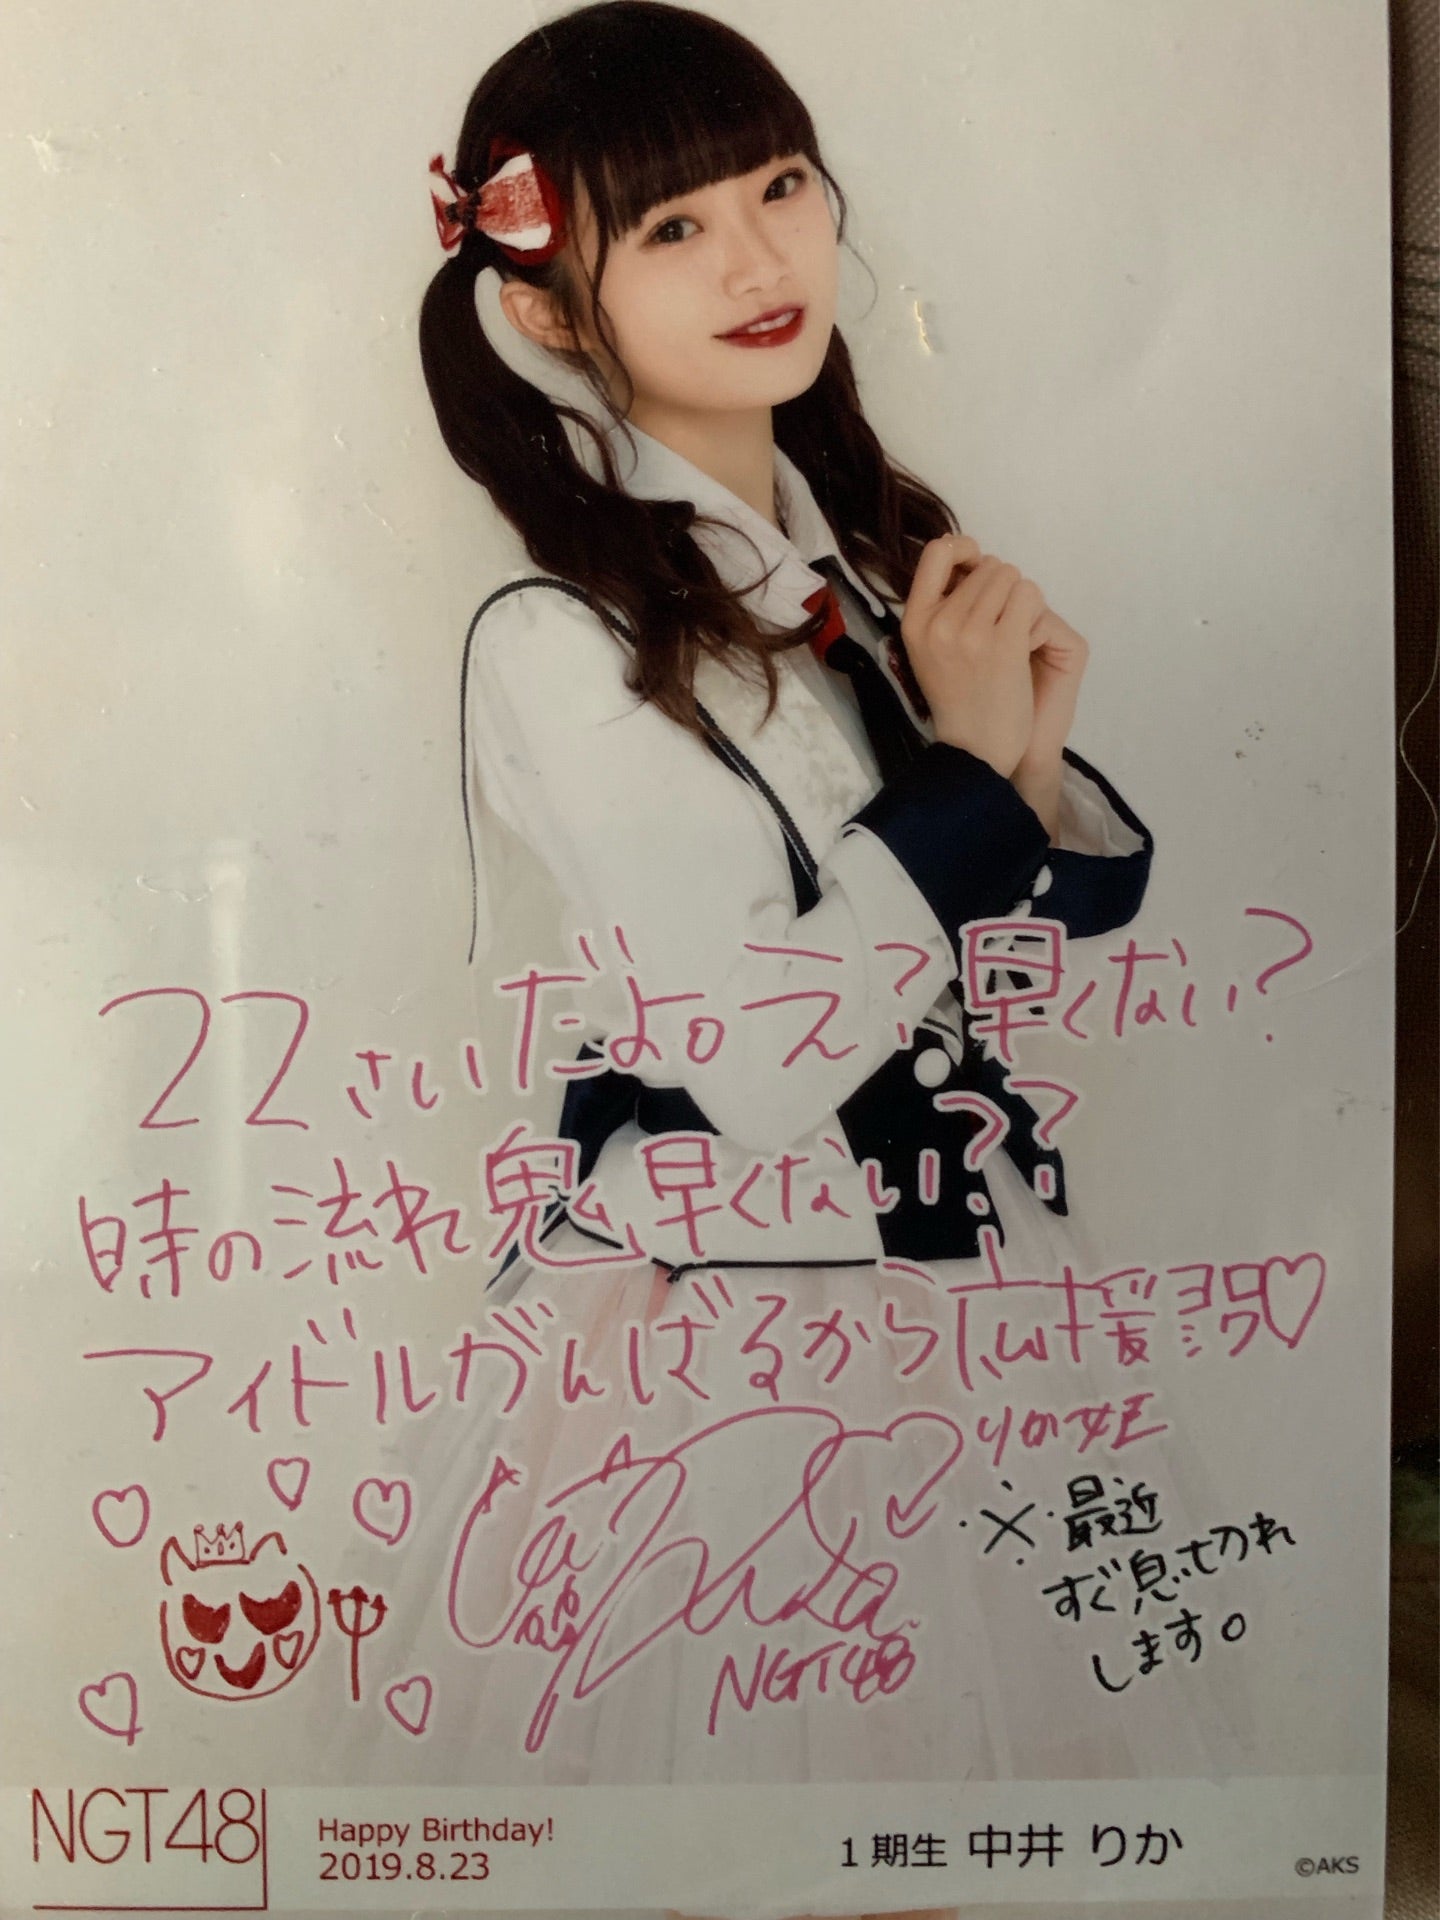 22さいだよ。え?早くない?
時の流れ鬼早くない???
アイドルがんばるから広援ヨロ♡
りか姫
Rika
NGT48
※最近
すぐ息切れ
します。
NGT48
Happy Birthday!
2019.8.23
1期生 中井 りか
©AKS